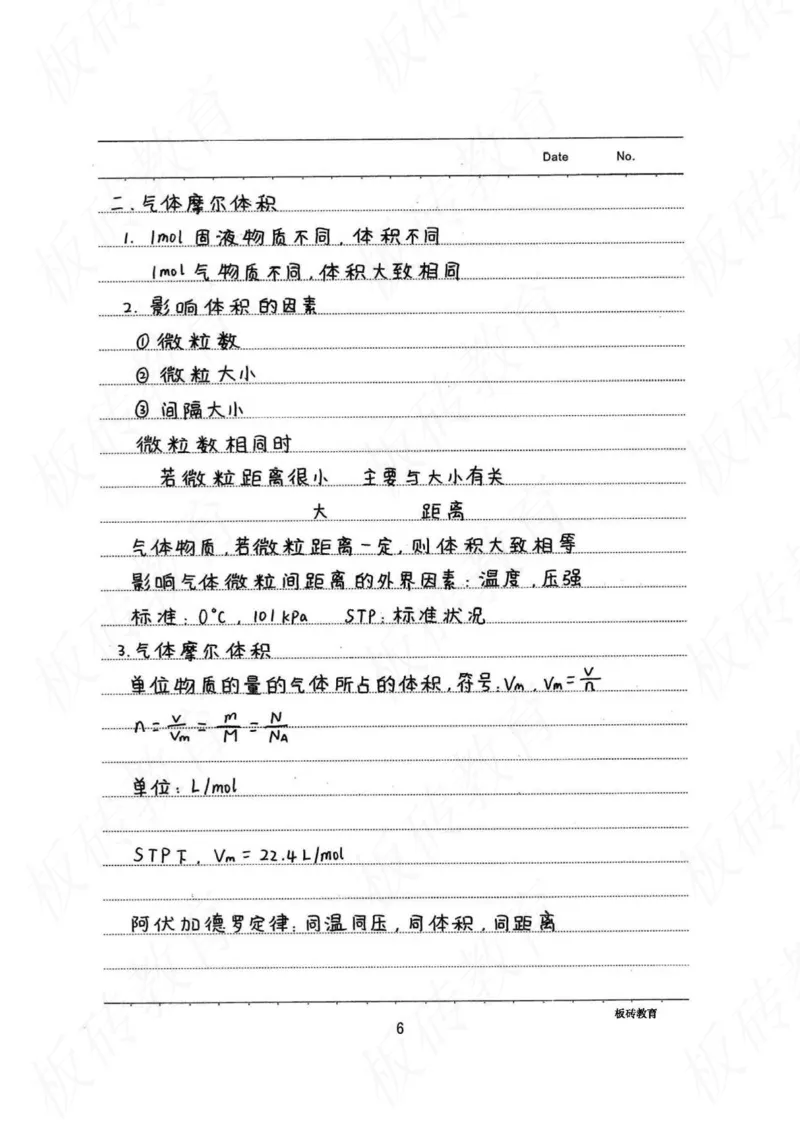 Date No.
二.气体摩尔体积
1. 1mol 固液物质不同,体积不同
1mol 气物质不同,体积大致相同
2. 影响体积的因素
① 微粒数
② 微粒大小
③ 间隔大小
微粒数相同时
若微粒距离很小 主要与大小有关
大 距离
气体物质,若微粒距离一定,则体积大致相等
影响气体微粒间距离的外界因素:温度,压强
标准:0℃,101kPa STP:标准状况
3.气体摩尔体积
单位物质的量的气体所占的体积,符号:Vm,Vm=V/n
n=V/Vm=m/M=N/NA
单位:L/mol
STP下,Vm=22.4L/mol
阿伏加德罗定律:同温同压,同体积,同距离
板砖教育
6